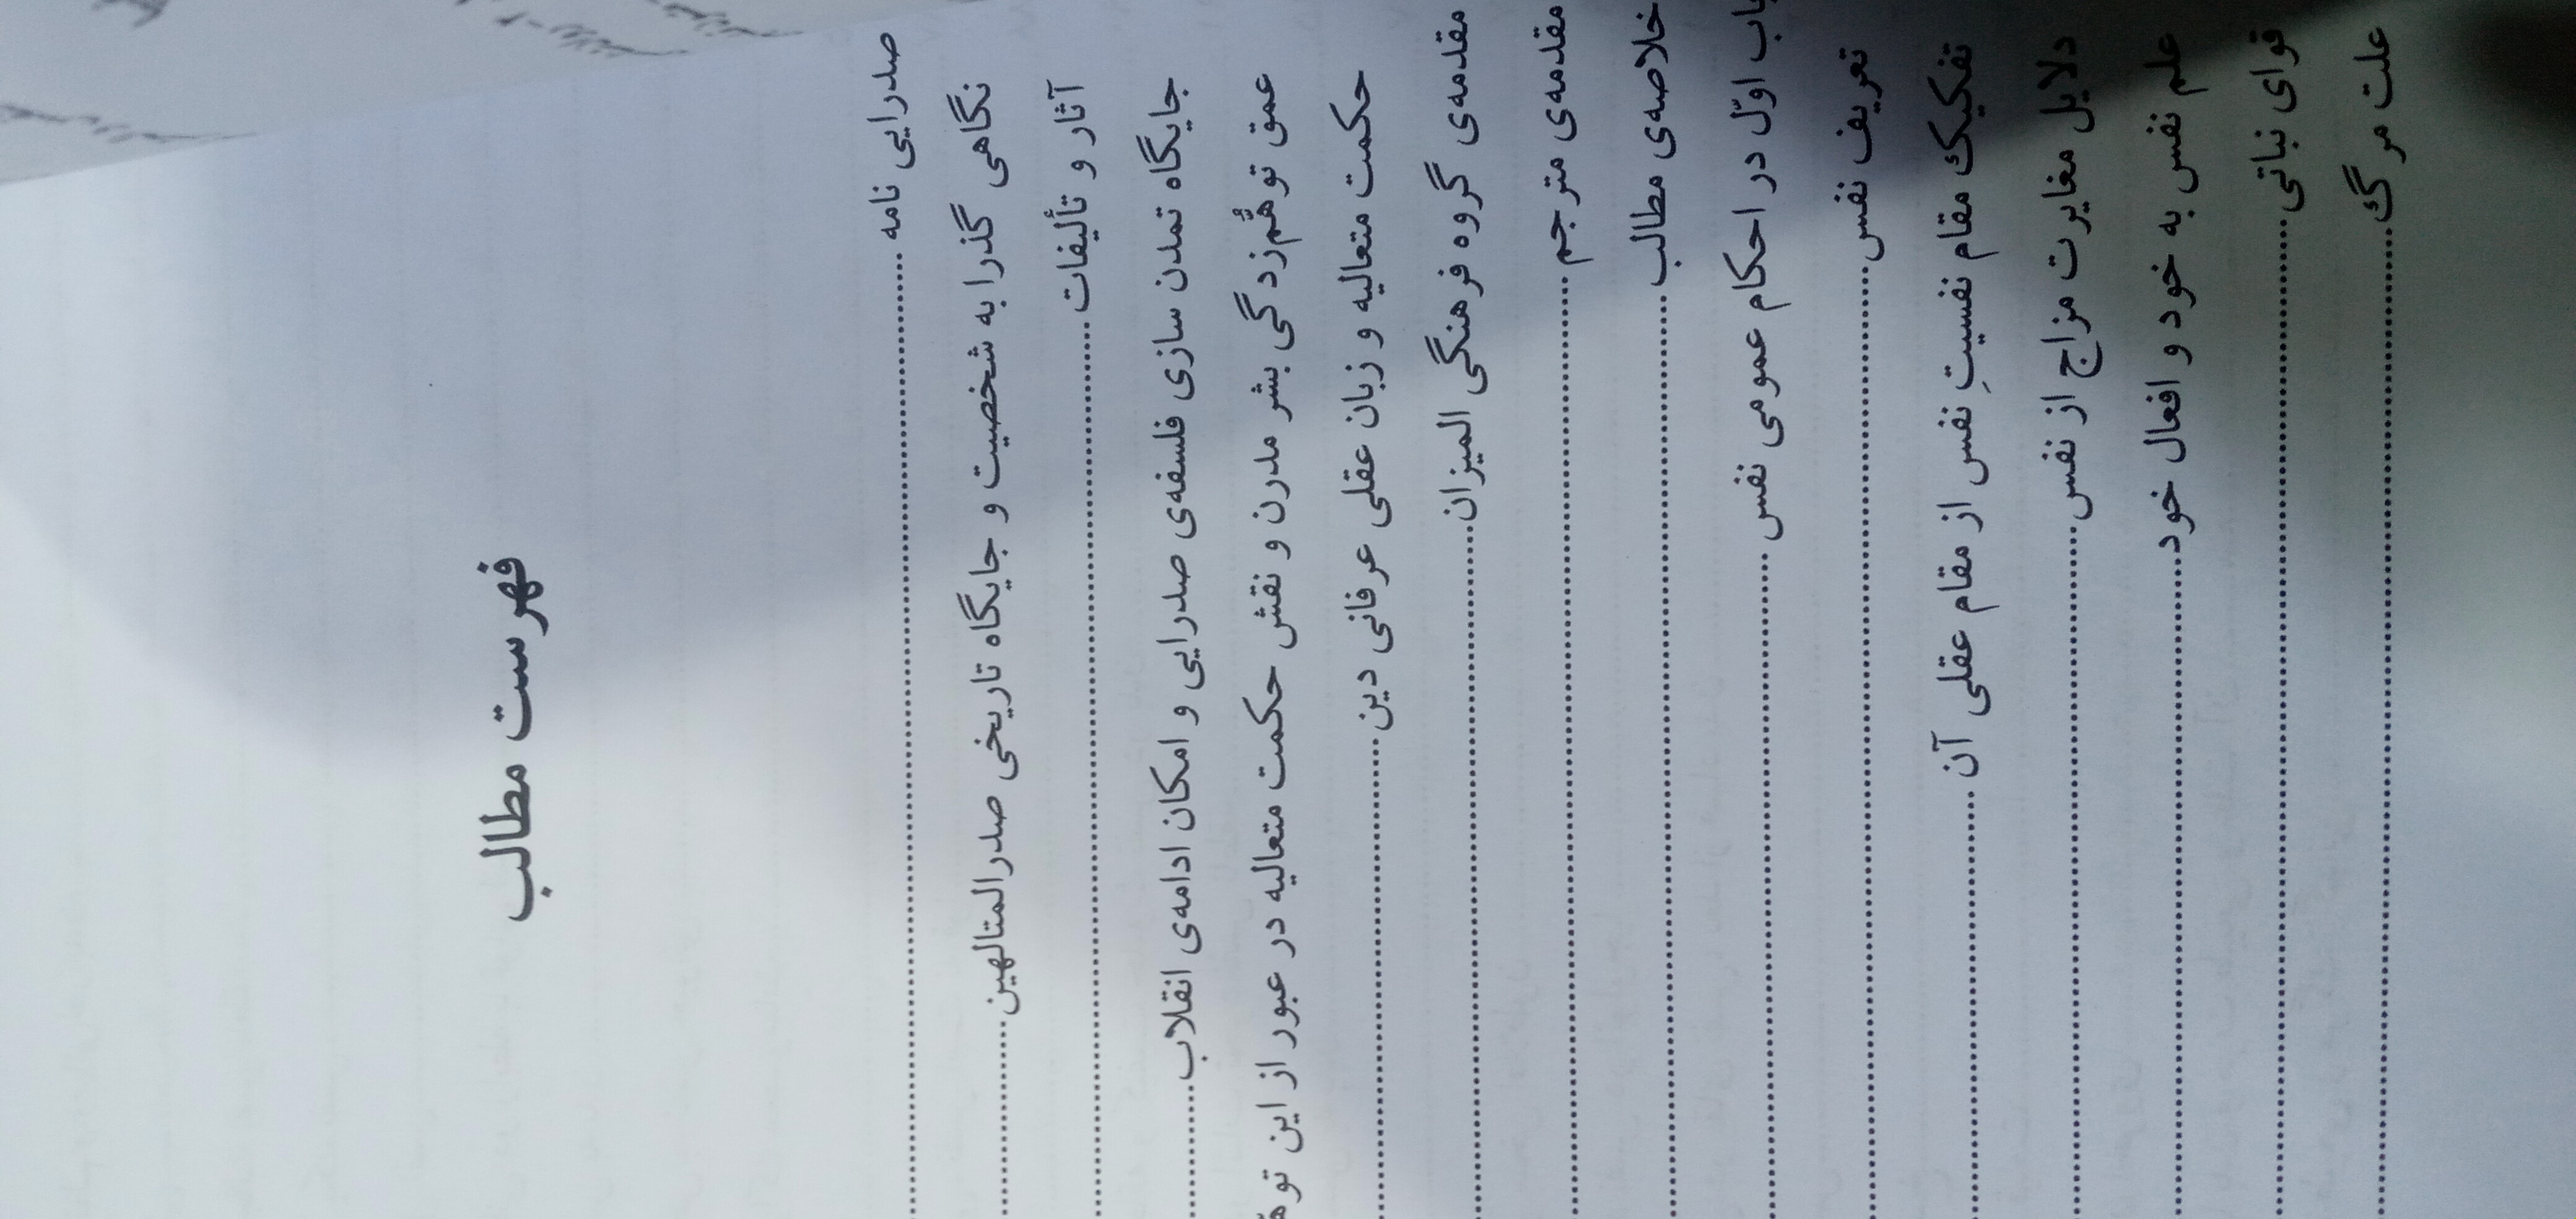 فهرست مطالب
صدرایی نامه
نگاهی گذرا به شخصیت و جایگاه تاریخی صدرالمتالهین
آثار و تألیفات
جایگاه تمدن سازی فلسفه‌ی صدرایی و امکان ادامه‌ی انقلاب
عمق توهّم‌زدگی بشر مدرن و نقش حکمت متعالیه در عبور از این
حکمت متعالیه و زبان عقلی عرفانی دین
مقدمه‌ی گروه فرهنگی المیزان
مقدمه‌ی مترجم
خلاصه‌ی مطالب
باب اوّل در احکام عمومی نفس
تعریف نفس
تفکیک مقام نفسیتِ نفس از مقام عقلی آن
دلایل مغایرت مزاج از نفس
علم نفس به خود و افعال خود
قوای نباتی
علت مرگ